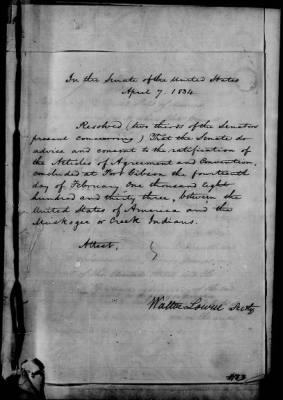 In the Senate of the United States
April 7. 1834.
Resolved (two thirds of the Senators
present concurring) That the Senate do
advice and consent to the ratification of
the Articles of Agreement and Convention,
concluded at Fort Gibson the fourteenth
day of February, one thousand eight
hundred and thirty three, between the
United States of America and the
Muskogee or Creek Indians.
Attest,
Walter Lowrie Secty